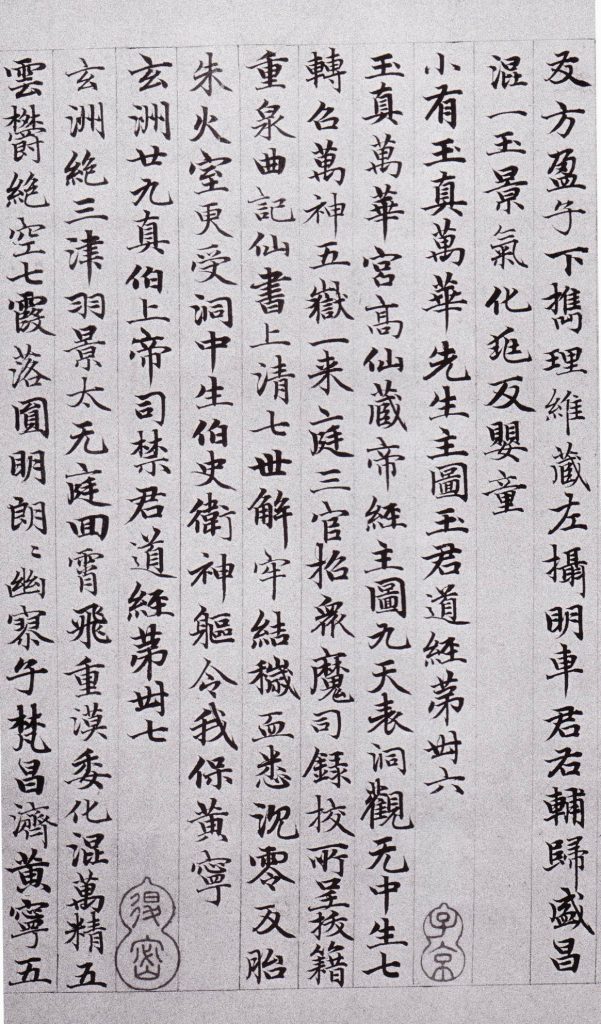 友方盈午下攜理維藏左攝明車君右輔歸盛昌
混一玉景氣化非反嬰童
小有玉真萬華先生主圖玉君道經苐卌六
玉真萬華宮高仙藏帝經主圖九天表洞觀无中生七
轉召萬神五嶽一来庭三官招衆魔司録校所呈拔籍
重泉曲記仙書上清七世解牢結穢血悉沉零反胎
朱火室更受洞中生伯史衛神軀令我保黃寧
玄洲廿九真伯上帝司禁君道經苐卌七
玄洲絶三津羽景太无庭回霄飛重漠委化混萬精五
雲欝絶空七霞落圓明朗〻幽寥午梵昌濟黃寧五
子京
得密